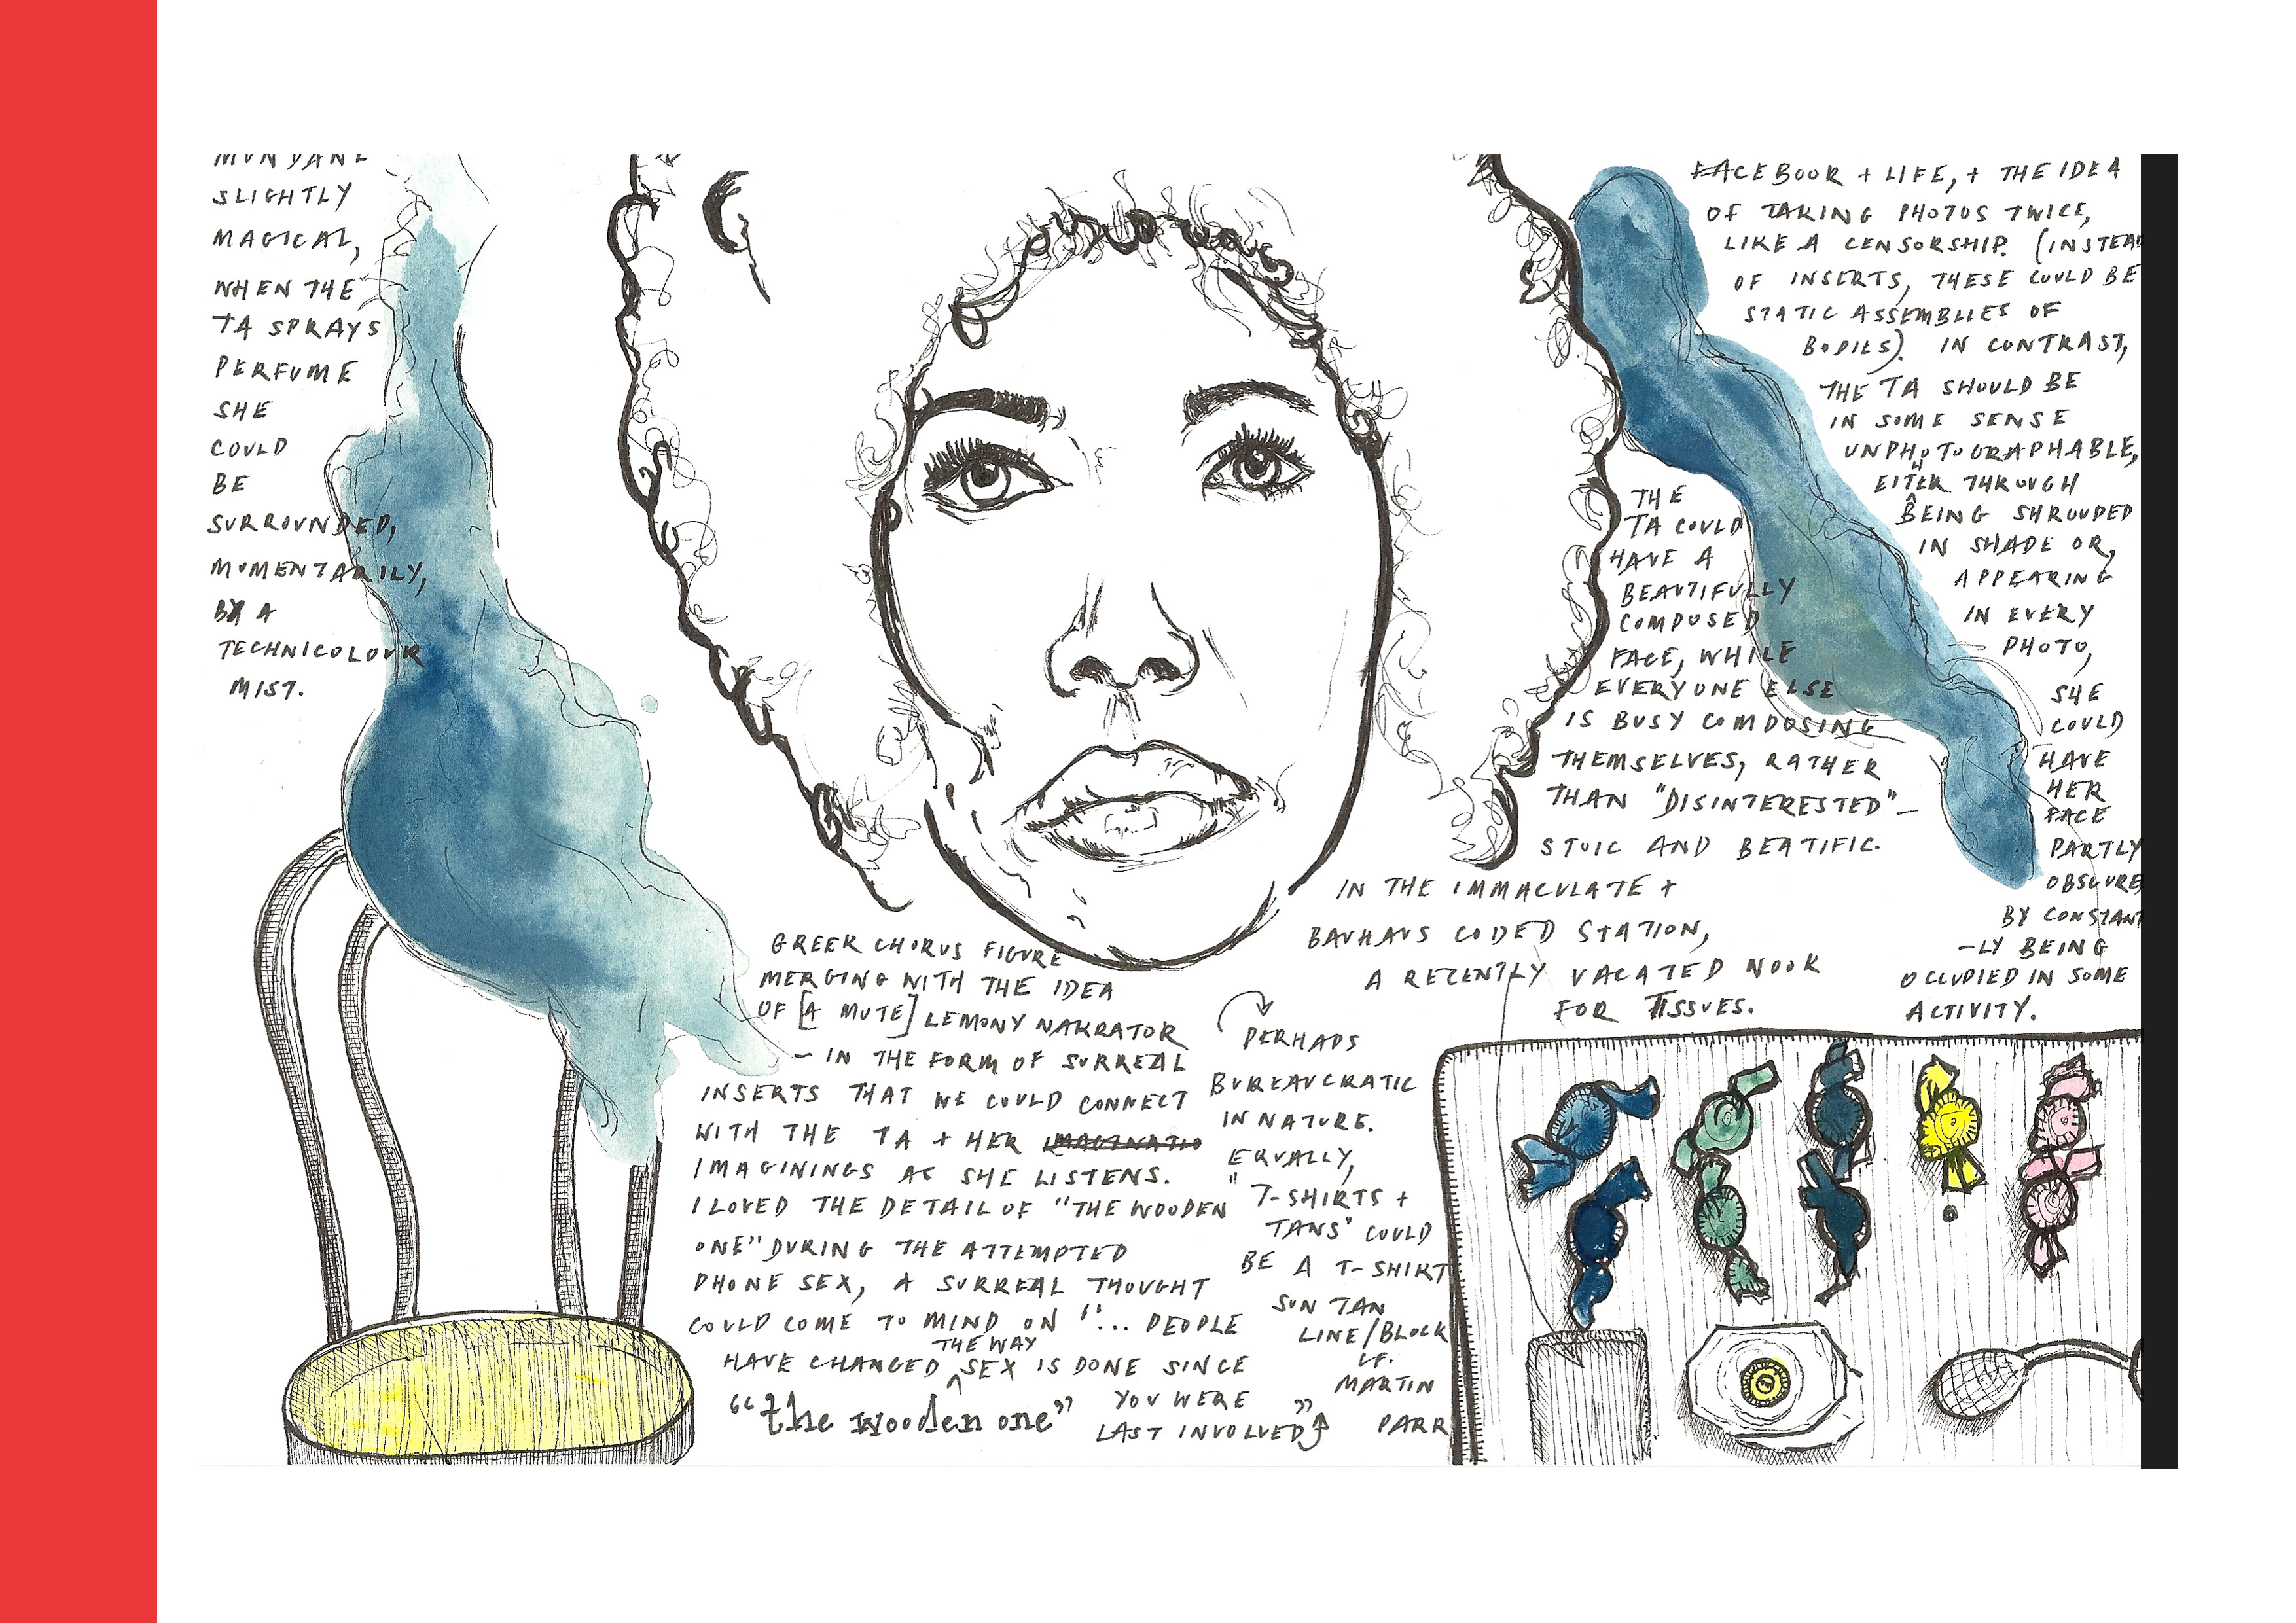 MUNDANE
SLIGHTLY
MAGICAL,
WHEN THE
TA SPRAYS
PERFUME
SHE
COULD
BE
SURROUNDED,
MOMENTARILY,
BY A
TECHNICOLOUR
MIST.
GREEK CHORUS FIGURE
MERGING WITH THE IDEA
OF [A MUTE] LEMONY NARRATOR
– IN THE FORM OF SURREAL
INSERTS THAT WE COULD CONNECT
WITH THE TA + HER IMAGINATIO
IMAGININGS AS SHE LISTENS.
I LOVED THE DETAIL OF "THE WOODEN
ONE" DURING THE ATTEMPTED
PHONE SEX, A SURREAL THOUGHT
COULD COME TO MIND ON "... PEOPLE
HAVE CHANGED THE WAY SEX IS DONE SINCE
YOU WERE
LAST INVOLVED"
"the wooden one"
PERHAPS
BUREAUCRATIC
IN NATURE.
EQUALLY,
"T-SHIRTS +
TANS" COULD
BE A T-SHIRT
SUN TAN
LINE/BLOCK
CF.
MARTIN
PARR
FACEBOOK + LIFE, + THE IDEA
OF TAKING PHOTOS TWICE,
LIKE A CENSORSHIP. (INSTEAD
OF INSERTS, THESE COULD BE
STATIC ASSEMBLIES OF
BODIES). IN CONTRAST,
THE TA SHOULD BE
IN SOME SENSE
UNPHOTOGRAPHABLE,
EITHER THROUGH
BEING SHROUDED
IN SHADE OR,
APPEARING
IN EVERY
PHOTO,
SHE
COULD
HAVE
HER
FACE
PARTLY
OBSCURE
BY CONSTANT
-LY BEING
OCCUPIED IN SOME
ACTIVITY.
THE
TA COULD
HAVE A
BEAUTIFULLY
COMPOSED
FACE, WHILE
EVERYONE ELSE
IS BUSY COMPOSING
THEMSELVES, RATHER
THAN "DISINTERESTED"–
STOIC AND BEATIFIC.
IN THE IMMACULATE +
BAUHAUS CODED STATION,
A RECENTLY VACATED NOOK
FOR TISSUES.